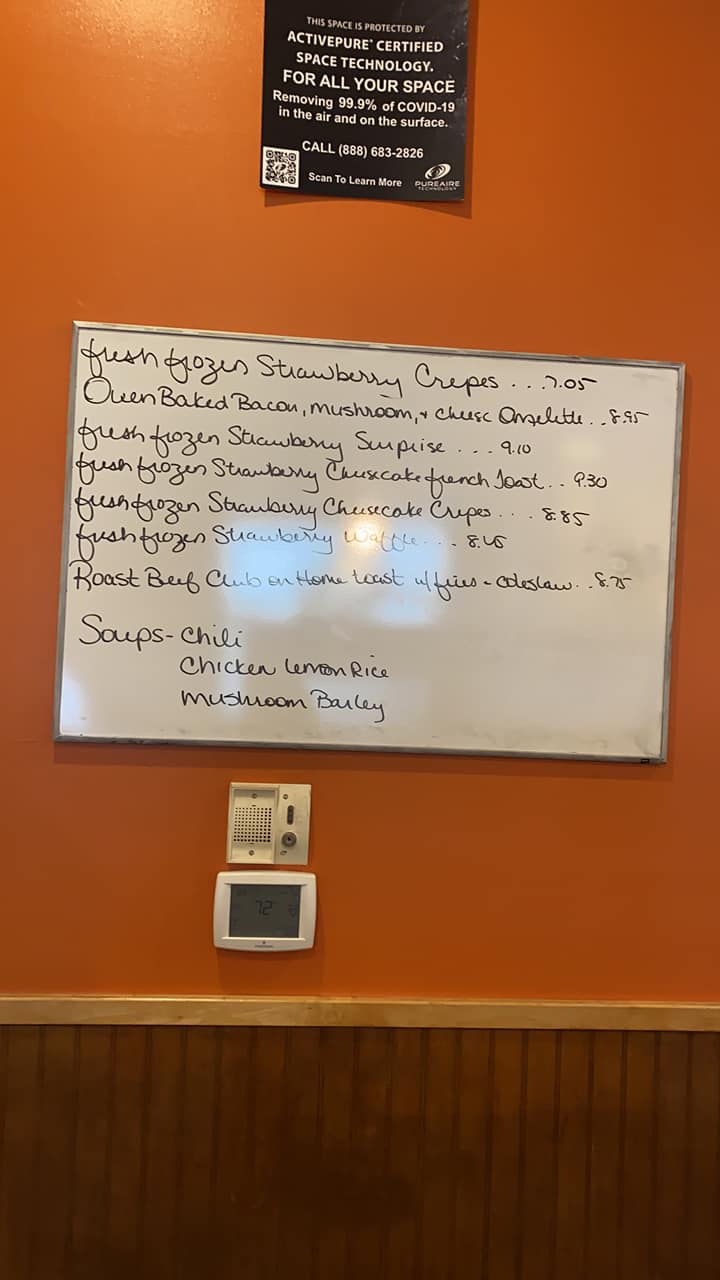 THIS SPACE IS PROTECTED BY
ACTIVEPURE® CERTIFIED
SPACE TECHNOLOGY.
FOR ALL YOUR SPACE
Removing 99.9% of COVID-19
in the air and on the surface.
CALL (888) 683-2826
Scan To Learn More
PUREAIRE
TECHNOLOGY
fresh frozen Strawberry Crepes . . . 7.05
Oven Baked Bacon, mushroom, + cheese Omelette . . 8.95
fresh frozen Strawberry Surprise . . . 9.10
fresh frozen Strawberry Cheesecake french Toast . . 9.30
fresh frozen Strawberry Cheesecake Crepes . . . 8.85
fresh frozen Strawberry Waffle . . .
Roast Beef Club on Home toast w/ fries - coleslaw . . 8.75
Soups - Chili
Chicken Lemon Rice
Mushroom Barley
72°